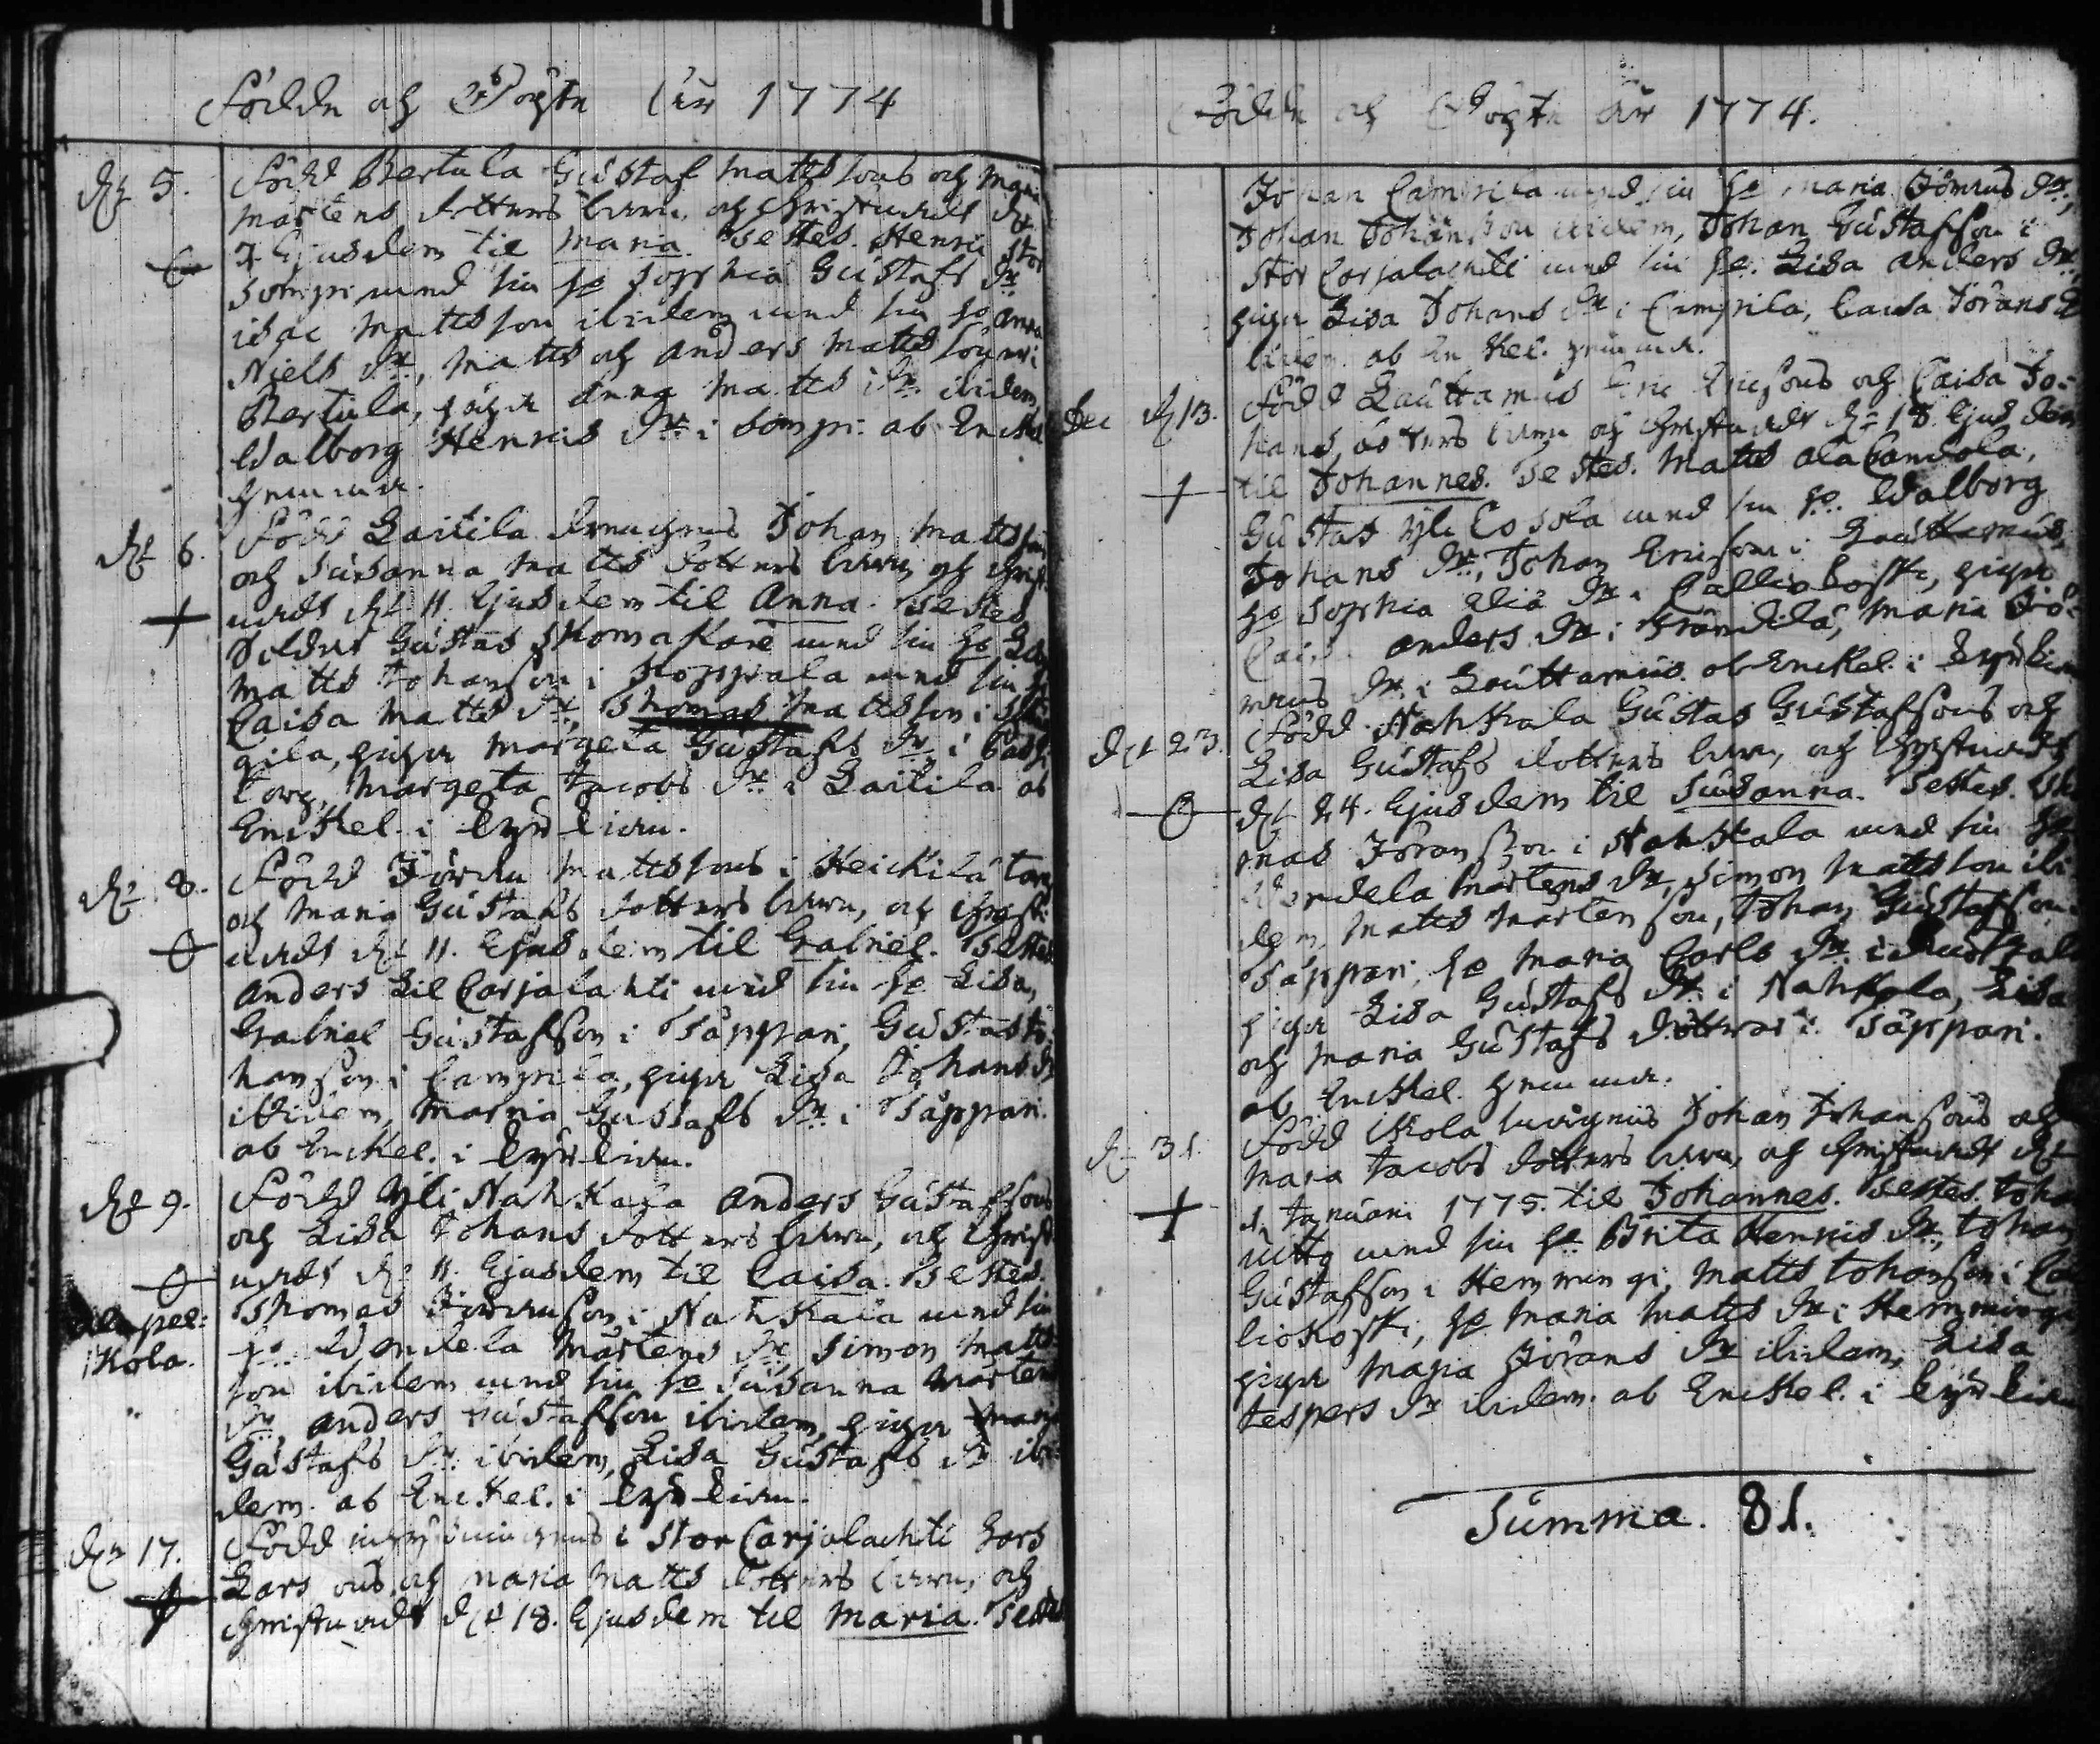 Födde och Döpte År 1774
d. 5. Född Bertula Gustaf Matts sons och Maria
Mårtens dotters barn, och Christnades d.
7. Ejusdem til Maria. Testes. Henric Stor
Sompi med sin h. Sophia Gustafs Dr.
isac Mattsson ibidem med sin h. Anna
Niels Dr., Matts och Anders Matts söner i
Bertula, pigor Anna Matts Dr. ibidem,
Walborg Henrics Dr. i Sompi. ab Enckel
hemma.
d. 6. Född Laitila Johan Matts son
och Susanna Matts dotters barn, och Christ
nades d. 11. Ejusdem til Anna. Testes
Gustas med sin h.
Matts Johansson i med sin h.
Caisa Matts Dr., Thomas Matsson i
gila, pigor Margeta Gustafs Dr. i
Margeta Jacobs Dr. i Laitila ab
Enckel. i kyrkian.
d. 8. Född Jöran Mattssons i Heickilä torp
och Maria Gustafs dotters barn, och Christ
nades d. 11. Ejusdem til Gabriel. Testes
Anders Lil Carjalahti med sin h. Lisa,
Gabriel Gustafsson i Täppari, Gustas Jo
hansson i Campila, pigor Lisa Johans Dr
ibidem, Maria Gustafs Dr. i Täppari.
ab Enckel. i kyrkian.
d. 9. Född Yli Nahkala Anders Gustafsons
och Lisa Johans dotters barn, och Christ
nades d. 11. Ejusdem til Caisa. Testes.
Thomas Jöransson i Nahkala med sin
h. Wendela Mårtens Dr. Simon Matts
son ibidem med sin h. Susanna Mårtens
Dr., Anders Gustafsson ibidem, pigor Maria
Gustafs Dr. ibidem, Lisa Gustafs Dr ibi
dem. ab Enckel. i kyrkian.
d. 17. Född i Stor Carjalachti Lars
Lars sons och Maria Matts dotters barn, och
Christnades d. 18. Ejusdem til Maria. Testes
Födde och Döpte År 1774.
Johan Campila med sin h. Maria Dr.,
Johan Johansson ibidem, Johan Gustafsson i
Stor Carjalachti med sin h. Lisa Anders Dr.
pigor Lisa Johans Dr. i Campila, Caisa Jörans Dr
ibidem. ab Enckel. hemma.
Dec d. 13. Född Lauttamus Eric Ericsons och Caisa Jo-
hans dotters barn och Christnades d. 18. Ejusdem
til Johannes. Testes. Matts
Gustas Yli med sin h. Walborg
Johans Dr., Johan Ericsson i Lauttamus,
h. Sophia Dr. i Calliokoski, pigor
Caisa Anders Dr. i Maria Jö-
rans Dr. i Lauttamus. ab Enckel. i kyrkian
d. 23. Född Nahkala Gustas Gustafsons och
Lisa Gustafs dotters barn, och Christnades
d. 24. Ejusdem til Susanna. Testes. Tho
mas Jöransson i Nahkala med sin h.
Wendela Mårtens Dr., Simon Mattsson ibi
dem, Matts Mårtensson, Johan Gustafsson
Täppari, h. Maria Carls Dr. i
pigor Lisa Gustafs Dr. i Nahkala, Lisa
och Maria Gustafs döttrar i Täppari.
ab Enckel. hemma.
d. 31. Född Ikola Johan Johansons och
Maria Jacobs dotters barn, och Christnades d.
1. Januari 1775. til Johannes. Testes. Johan
med sin h. Brita Henrics Dr., Johan
Gustafsson i Hemmingi, Matts Johansson i Cal
liokoski, h. Maria Matts Dr. i Hemmingi
pigor Maria Jörans Dr ibidem, Lisa
Jespers Dr ibidem. ab Enckel. i kyrkian
Summa. 81.
Alapel:
Ikola.